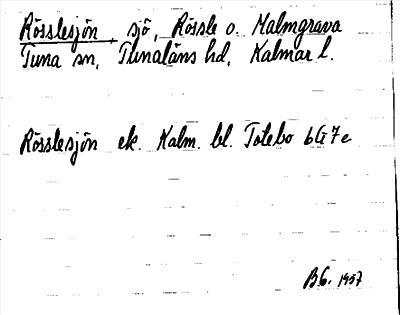 Rösslesjön, sjö, Rössle o. Malmgrava
Tuna sn, Tunaläns hd, Kalmar l.
Rösslesjön ek. Kalm. bl. Totebo 6G7e
BG. 1957